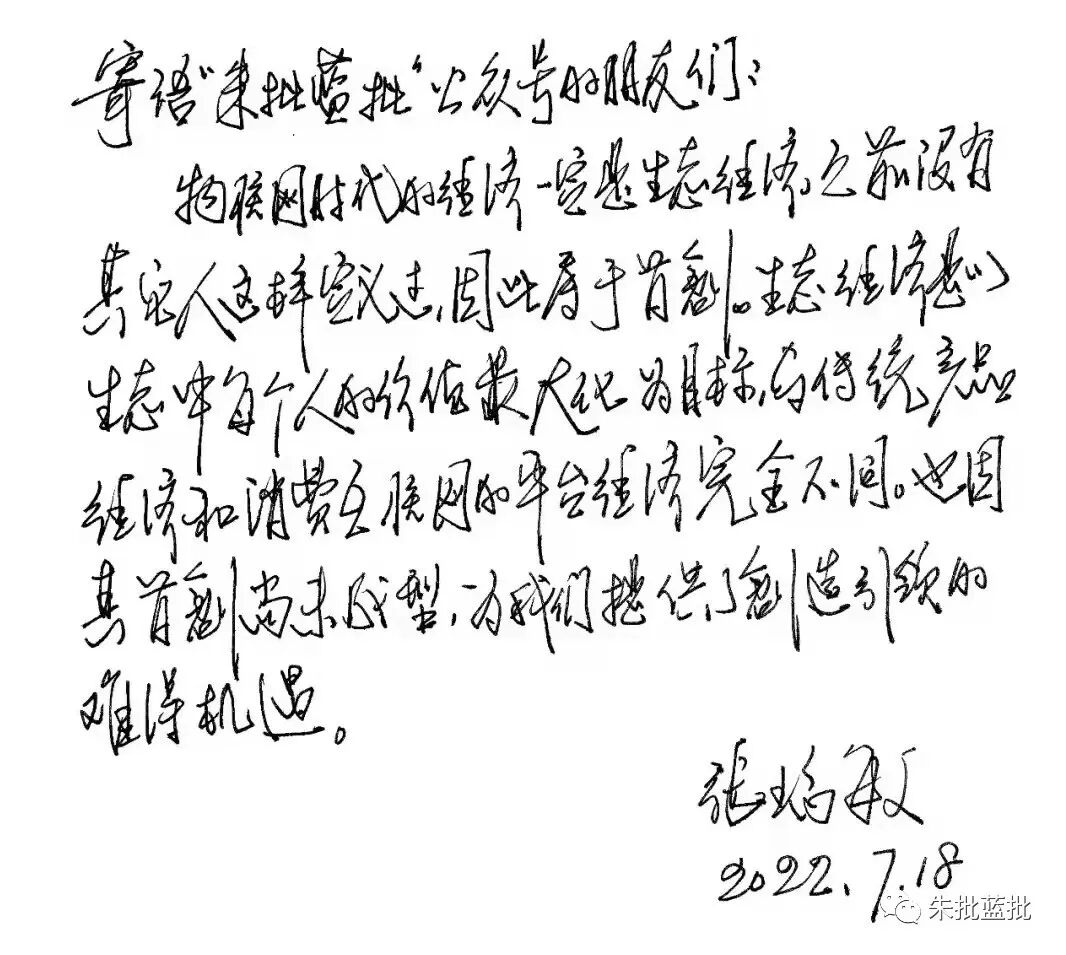 寄语“朱批蓝批”公众号的朋友们:
物联网时代的经济一定是生态经济,之前没有
其它人这样定义过,因此属于首创。生态经济是以
生态中每个人的价值最大化为目标,与传统产品
经济和消费互联网的平台经济完全不同。也因
其首创尚未成型,为我们提供了创造引领的
难得机遇。
张瑞敏
2022.7.18
朱批蓝批